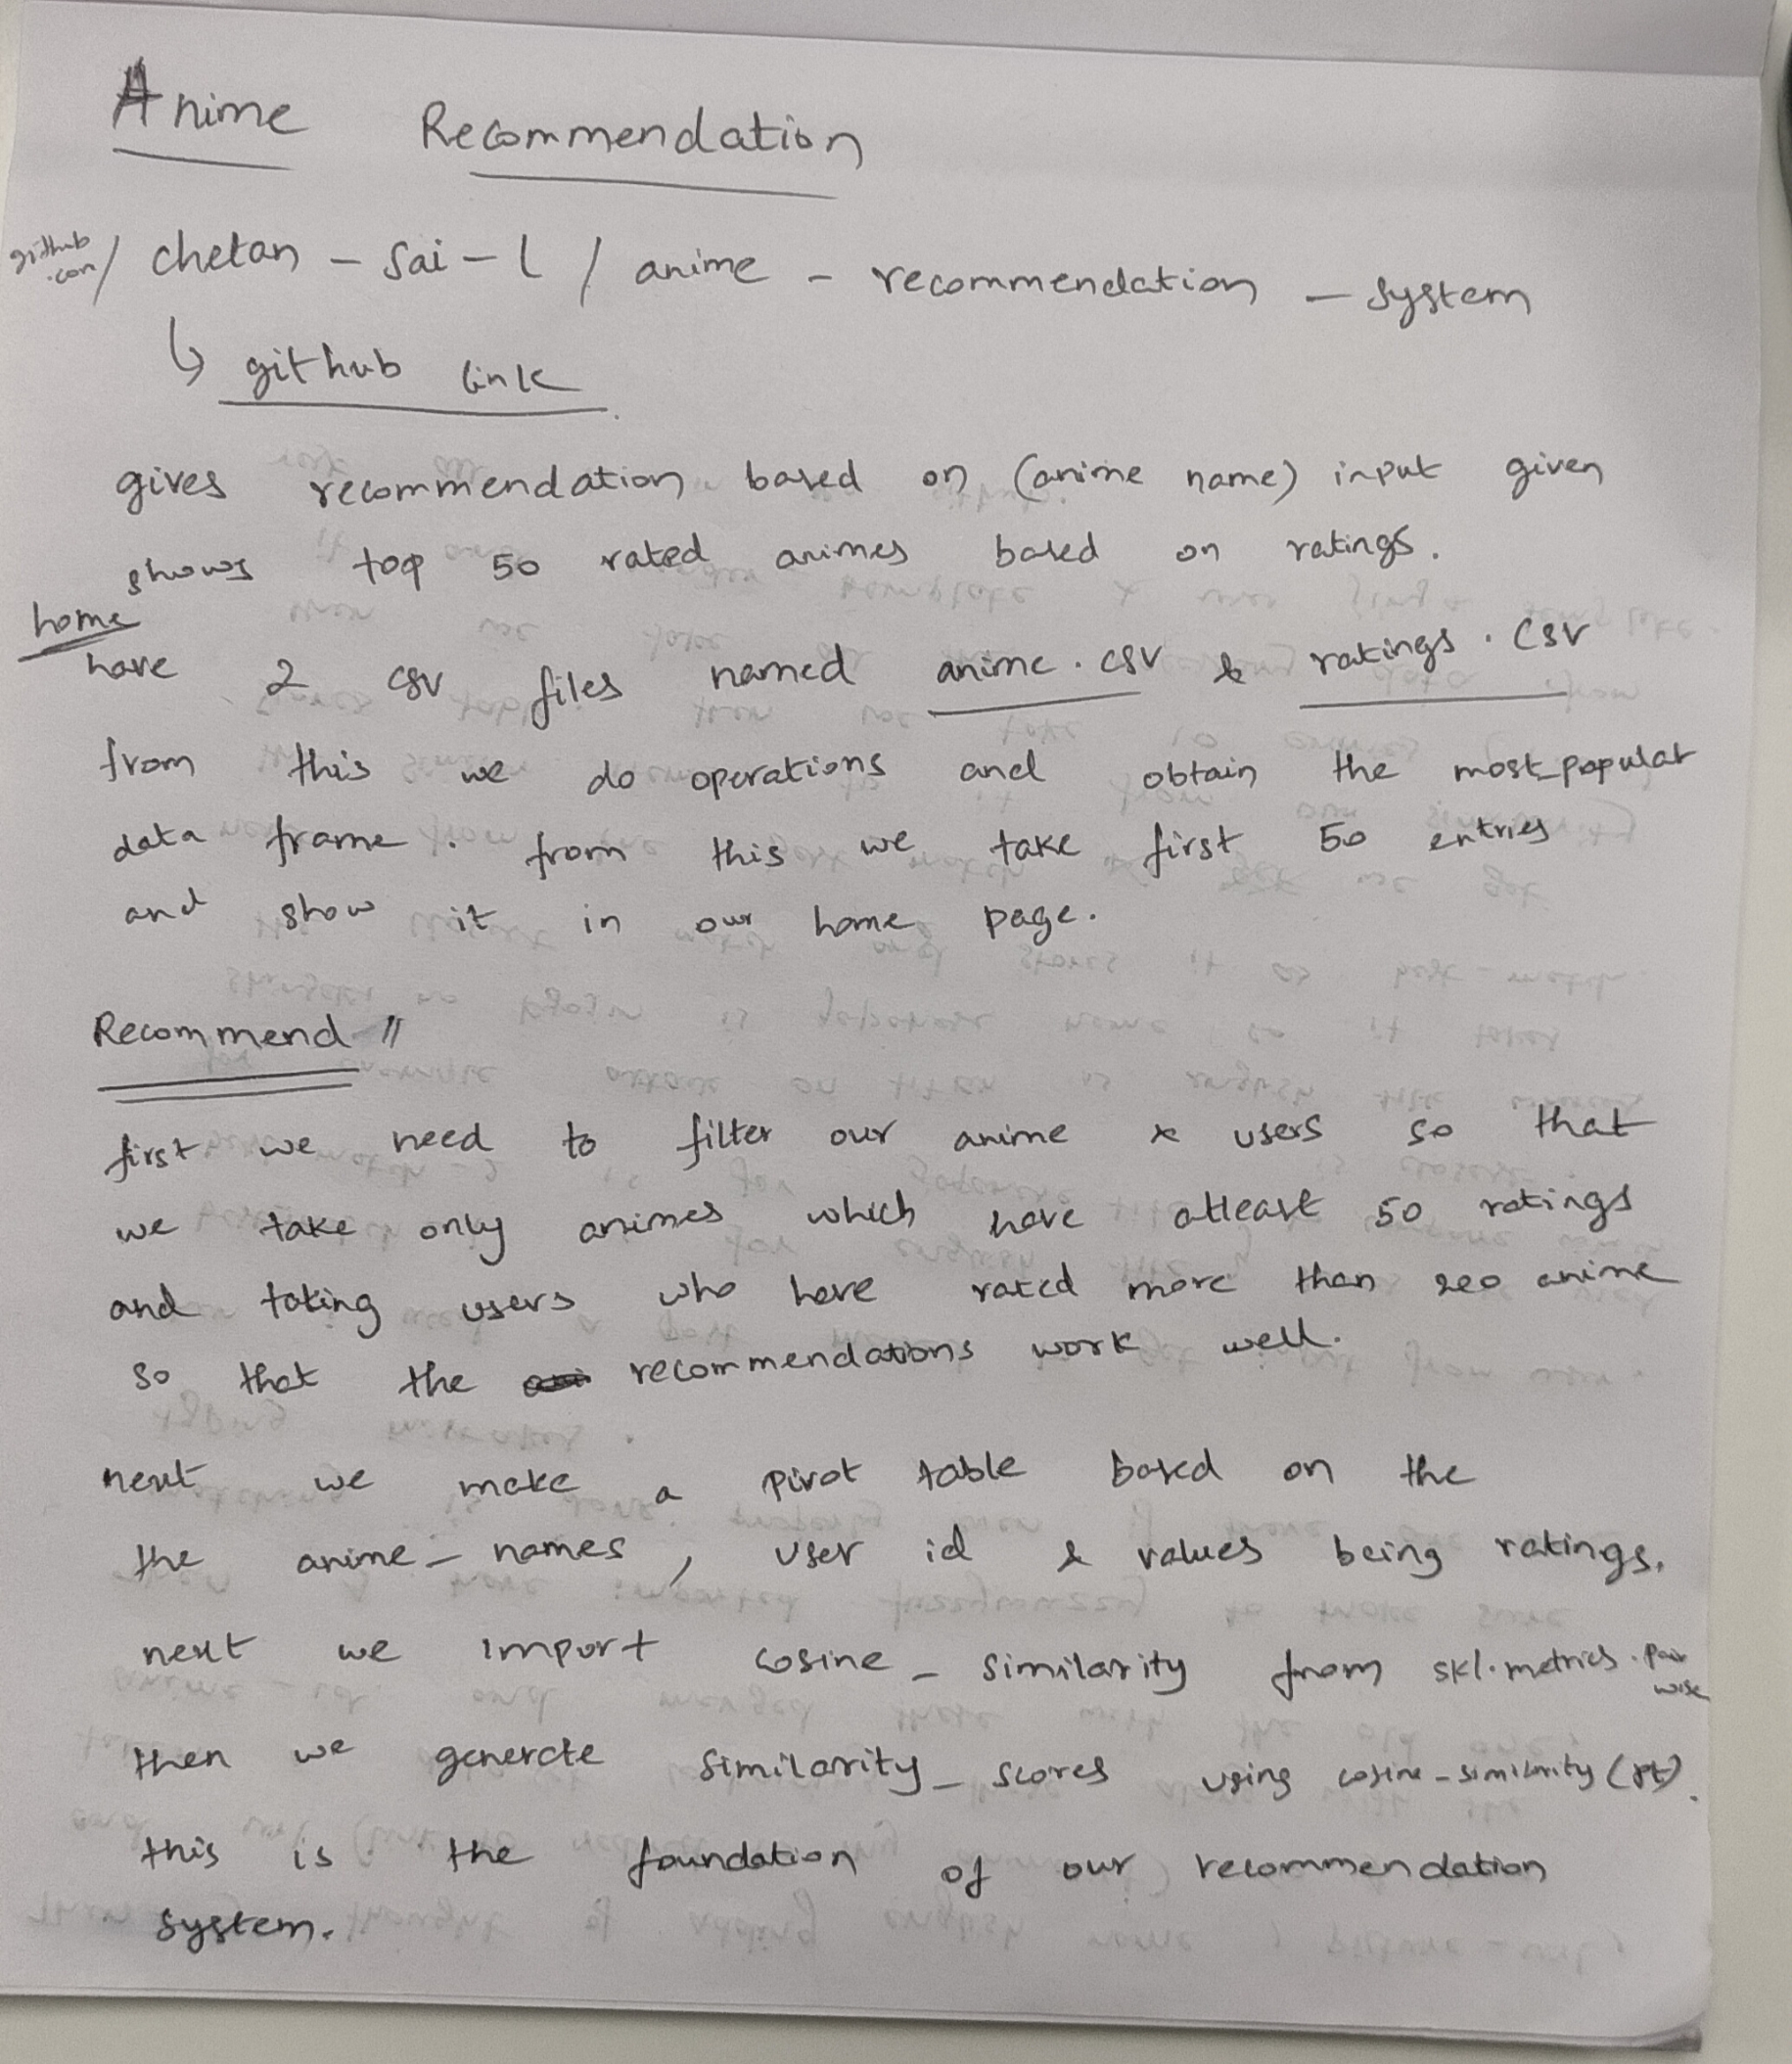 Anime Recommendation
github.com/chetan-sai-l/anime-recommendation-system
↳ github link.
gives recommendation based on (anime name) input given
shows top 50 rated animes based on ratings.
home
have 2 csv files named anime.csv & ratings.csv
from this we do operations and obtain the most_popular
data frame. from this we take first 50 entries
and show it in our home page.
Recommend
first we need to filter our anime & users so that
we take only animes which have atleast 50 ratings
and taking users who have rated more than anime
so that the recommendations work well.
next we make a pivot table based on the
the anime_names, user id & values being ratings.
next we import cosine_similarity from skl.metrics.pairwise
then we generate similarity_scores using cosine_similarity(pt).
this is the foundation of our recommendation
system.